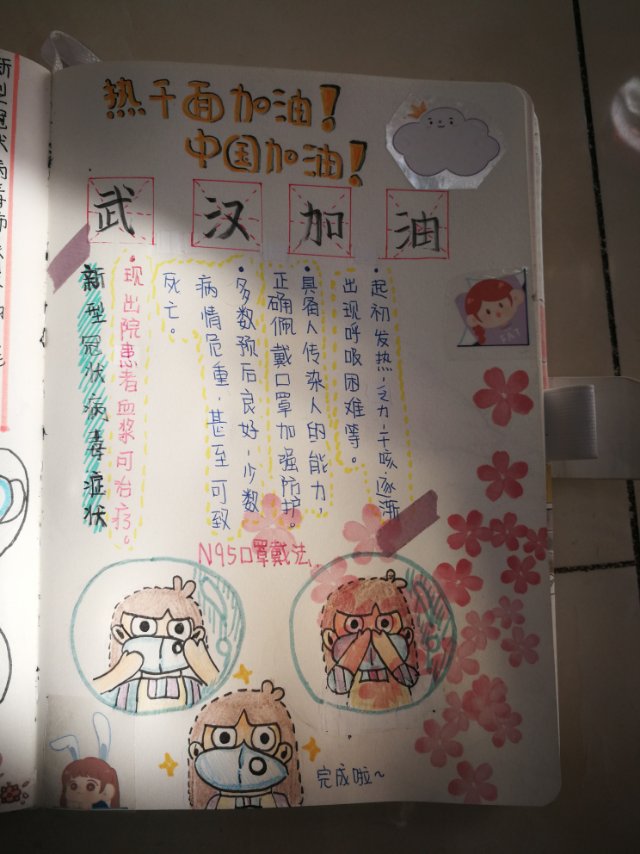 热干面加油!
中国加油!
武汉加油
•起初发热,乏力,干咳逐渐
出现呼吸困难等。
•具备人传染人的能力,
正确佩戴口罩加强防护。
•多数预后良好,少数
病情危重,甚至可致
死亡。
•现出院患者血浆可治疗。
新型冠状病毒症状
N95口罩戴法
完成啦~